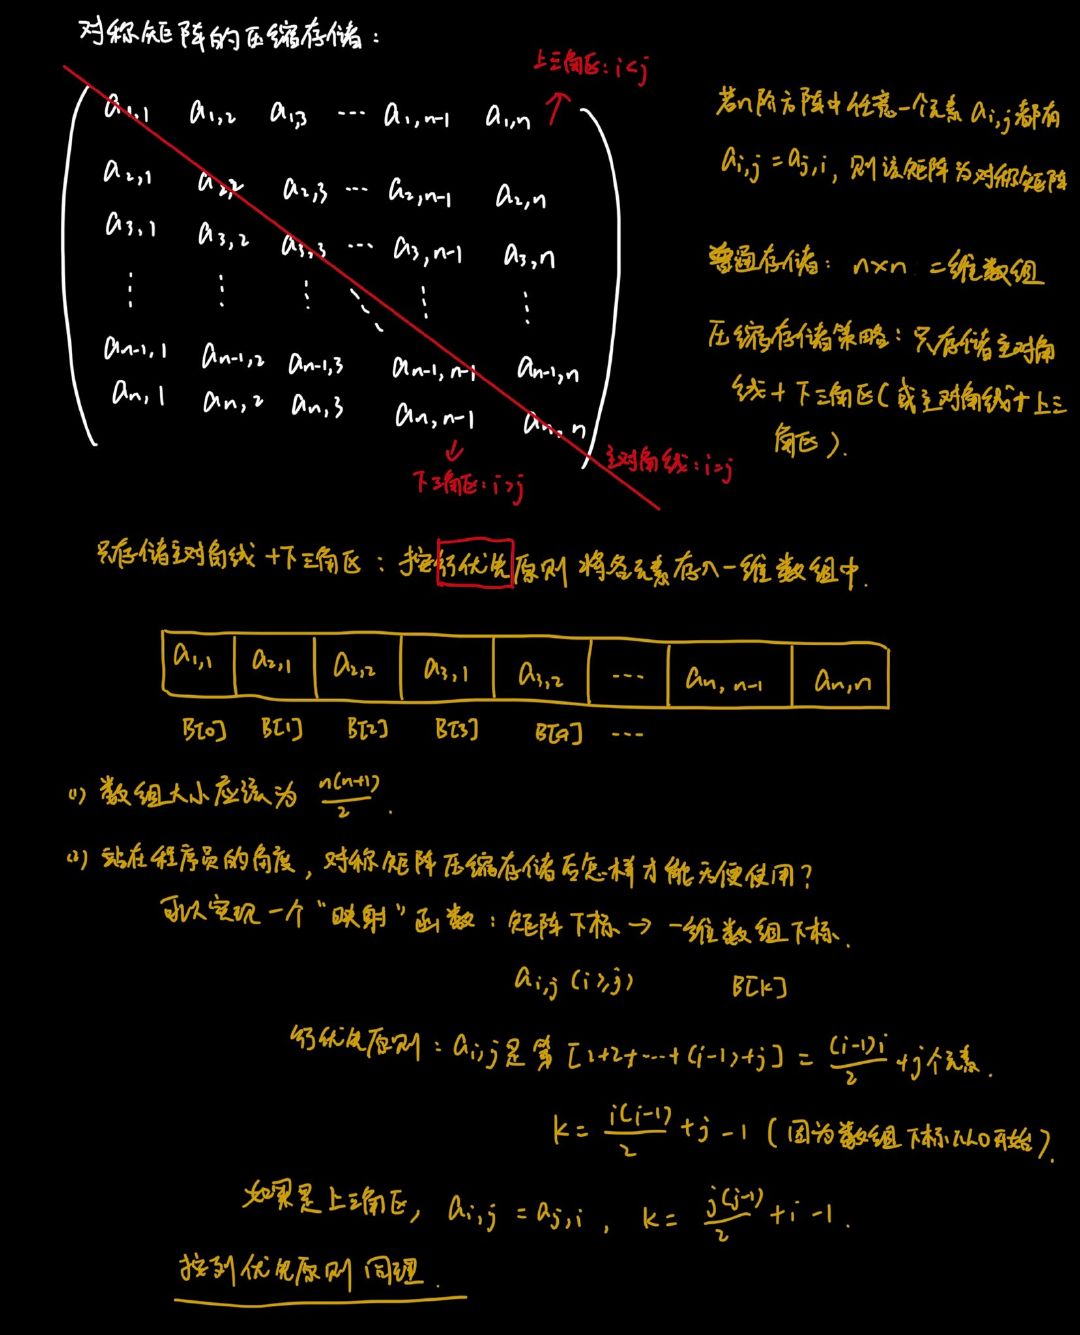 对称矩阵的压缩存储：
上三角区：i<j
a1,1 a1,2 a1,3 ··· a1,n-1 a1,n
a2,1 a2,2 a2,3 ··· a2,n-1 a2,n
a3,1 a3,2 a3,3 ··· a3,n-1 a3,n
an-1,1 an-1,2 an-1,3 an-1,n-1 an-1,n
an,1 an,2 an,3 an,n-1 an,n
下三角区：i>j
主对角线：i=j
若n阶方阵中任意一个元素 ai,j都有
ai,j = aj,i，则该矩阵为对称矩阵
普通存储：n×n 二维数组
压缩存储策略：只存储主对角
线+下三角区（或主对角线+上三
角区）.
只存储主对角线+下三角区：按行优先原则将各元素存入一维数组中.
a1,1 a2,1 a2,2 a3,1 a3,2 ··· an,n-1 an,n
B[0] B[1] B[2] B[3] B[4] ···
(1) 数组大小应该为 n(n+1)/2.
(2) 站在程序员的角度，对称矩阵压缩存储后怎样才能方便使用？
可以实现一个“映射”函数：矩阵下标→一维数组下标.
ai,j (i≥j) B[k]
行优先原则：ai,j是第[1+2+···+(i-1)+j] = (i-1)i/2 +j个元素.
k= i(i-1)/2 +j-1（因为数组下标从0开始）.
如果是上三角区，ai,j = aj,i，k= j(j-1)/2 +i-1.
按列优先原则同理.